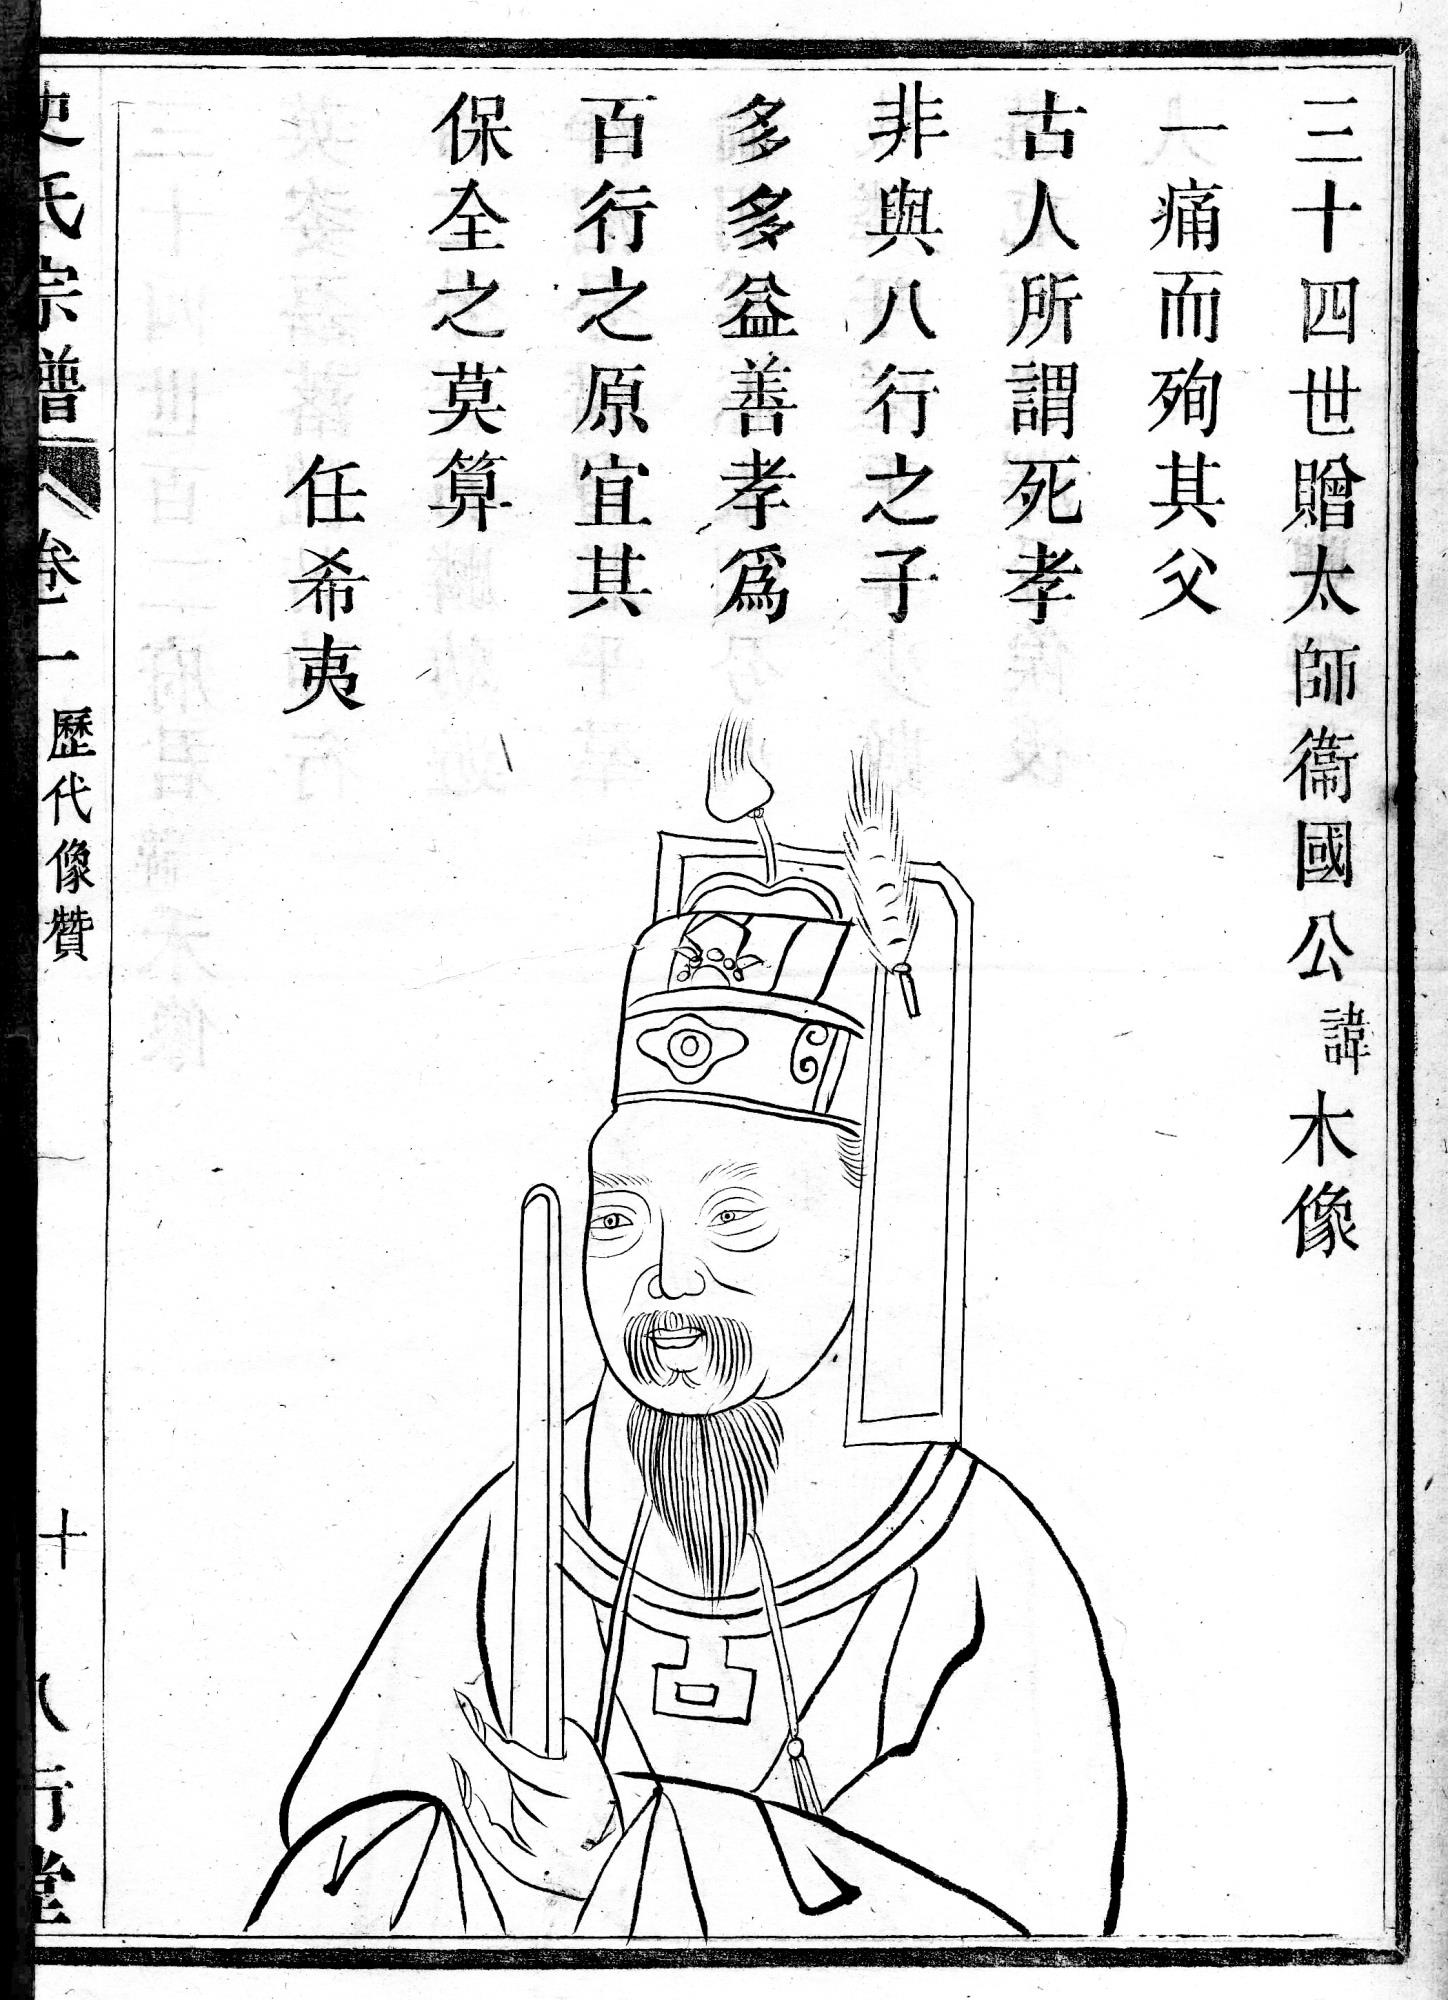 三十四世贈太師衞國公諱木像
一痛而殉其父
古人所謂死孝
非與八行之子
多多益善孝爲
百行之原宜其
保全之莫算
任希夷
史氏宗譜 卷一 歷代像贊 十 八行堂